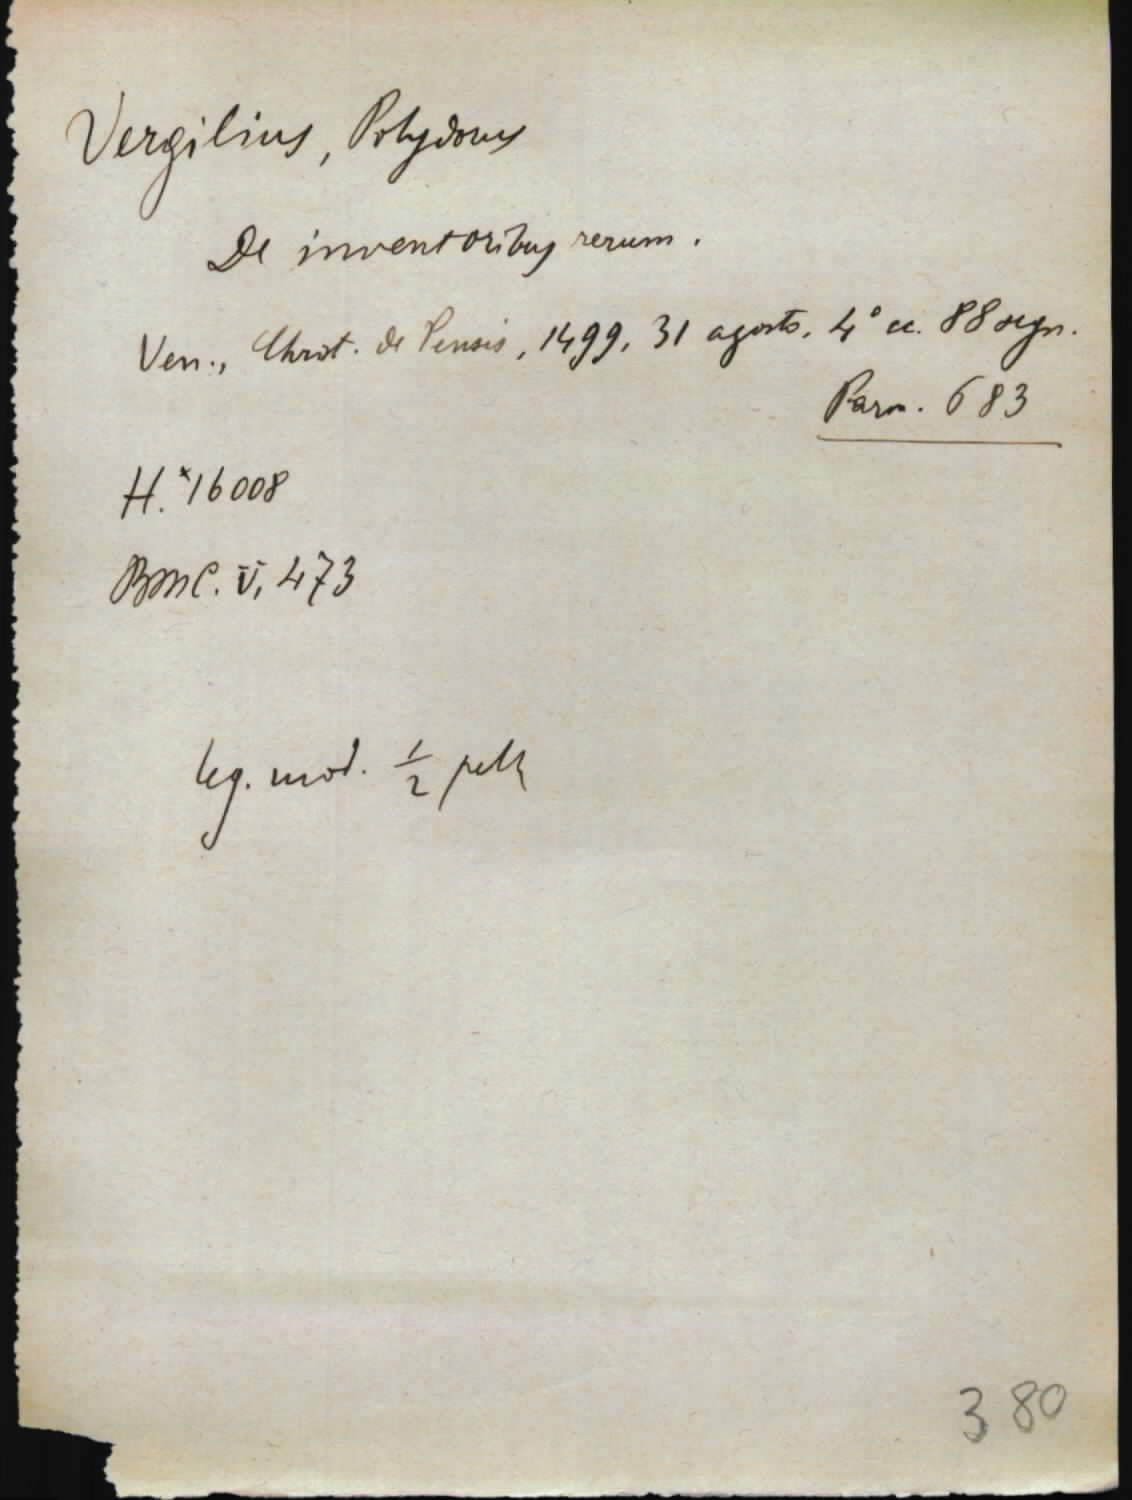 Vergilius, Polydorus
De inventoribus rerum.
Ven., Christ. de Pensis, 1499, 31 agosto. 4° cc. 88 segn.
Parm. 683
H. *16008
BMC. V, 473
leg. mod. 1/2 pelle
380